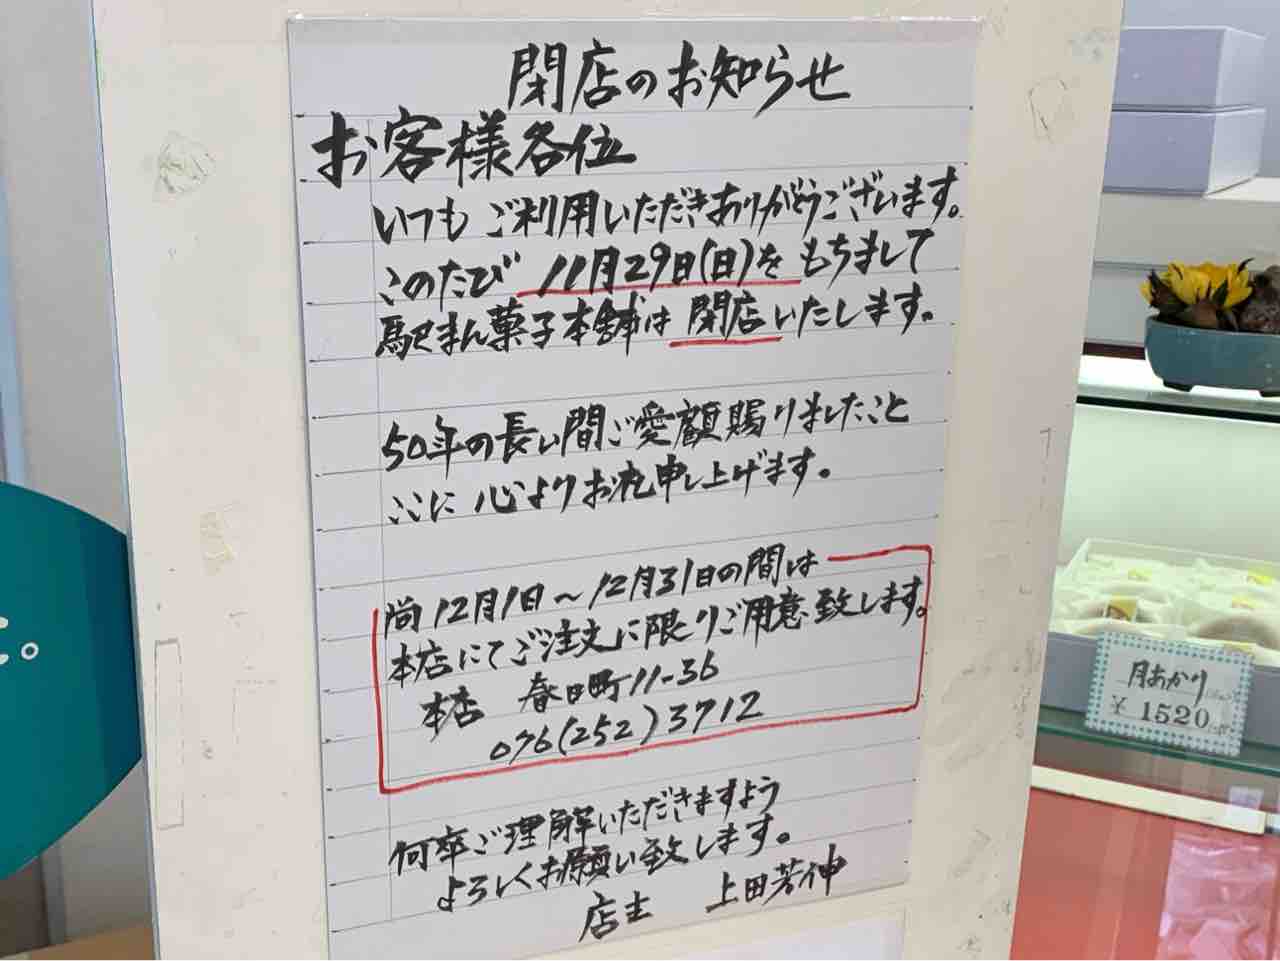 閉店のお知らせ
お客様各位
いつもご利用いただきありがとうございます。
このたび 11月29日(日)をもちまして
駅まん菓子本舗は閉店いたします。
50年の長い間ご愛顧賜りましたこと
ここに心よりお礼申し上げます。
尚12月1日～12月31日の間は
本店にてご注文に限りご用意致します。
本店 春日町11-36
076(252)3712
何卒ご理解いただきますよう
よろしくお願い致します。
店主 上田芳伸
月あかり
¥1520